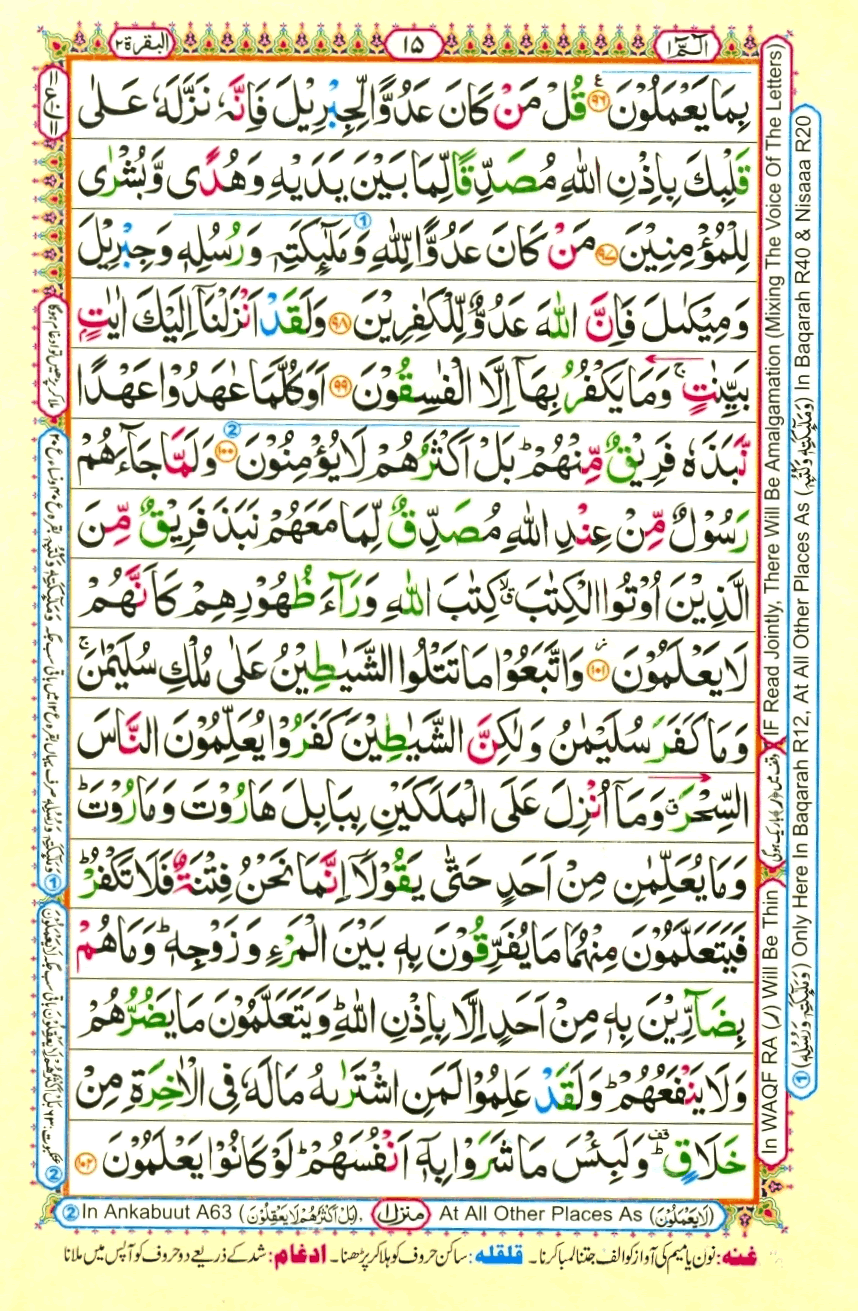 الٓمّٓ ١
١٥
البقرة ٢
بِمَا يَعْمَلُوْنَ ۝٩٦ قُلْ مَنْ كَانَ عَدُوًّا لِّجِبْرِيْلَ فَاِنَّهٗ نَزَّلَهٗ عَلٰى
قَلْبِكَ بِاِذْنِ اللّٰهِ مُصَدِّقًا لِّمَا بَيْنَ يَدَيْهِ وَهُدًى وَّبُشْرٰى
لِلْمُؤْمِنِيْنَ ۝٩٧ مَنْ كَانَ عَدُوًّا لِّلّٰهِ وَمَلٰٓئِكَتِهٖ وَرُسُلِهٖ وَجِبْرِيْلَ
وَمِيْكٰىلَ فَاِنَّ اللّٰهَ عَدُوٌّ لِّلْكٰفِرِيْنَ ۝٩٨ وَلَقَدْ اَنْزَلْنَآ اِلَيْكَ اٰيٰتٍۭ
بَيِّنٰتٍ ۚ وَمَا يَكْفُرُ بِهَآ اِلَّا الْفٰسِقُوْنَ ۝٩٩ اَوَكُلَّمَا عٰهَدُوْا عَهْدًا
نَّبَذَهٗ فَرِيْقٌ مِّنْهُمْ ؕ بَلْ اَكْثَرُهُمْ لَا يُؤْمِنُوْنَ ۝١٠٠ وَلَمَّا جَآءَهُمْ
رَسُوْلٌ مِّنْ عِنْدِ اللّٰهِ مُصَدِّقٌ لِّمَا مَعَهُمْ نَبَذَ فَرِيْقٌ مِّنَ
الَّذِيْنَ اُوْتُوا الْكِتٰبَ ۙۗ كِتٰبَ اللّٰهِ وَرَآءَ ظُهُوْرِهِمْ كَاَنَّهُمْ
لَا يَعْلَمُوْنَ ۝١٠١ وَاتَّبَعُوْا مَا تَتْلُوا الشَّيٰطِيْنُ عَلٰى مُلْكِ سُلَيْمٰنَ ۚ
وَمَا كَفَرَ سُلَيْمٰنُ وَلٰكِنَّ الشَّيٰطِيْنَ كَفَرُوْا يُعَلِّمُوْنَ النَّاسَ
السِّحْرَ ۗ وَمَآ اُنْزِلَ عَلَى الْمَلَكَيْنِ بِبَابِلَ هَارُوْتَ وَمَارُوْتَ ؕ
وَمَا يُعَلِّمٰنِ مِنْ اَحَدٍ حَتّٰى يَقُوْلَآ اِنَّمَا نَحْنُ فِتْنَةٌ فَلَا تَكْفُرْ ؕ
فَيَتَعَلَّمُوْنَ مِنْهُمَا مَا يُفَرِّقُوْنَ بِهٖ بَيْنَ الْمَرْءِ وَزَوْجِهٖ ؕ وَمَا هُمْ
بِضَآرِّيْنَ بِهٖ مِنْ اَحَدٍ اِلَّا بِاِذْنِ اللّٰهِ ؕ وَيَتَعَلَّمُوْنَ مَا يَضُرُّهُمْ
وَلَا يَنْفَعُهُمْ ؕ وَلَقَدْ عَلِمُوْا لَمَنِ اشْتَرٰىهُ مَا لَهٗ فِى الْاٰخِرَةِ مِنْ
خَلَاقٍ ؕ۫ وَلَبِئْسَ مَا شَرَوْا بِهٖٓ اَنْفُسَهُمْ ؕ لَوْ كَانُوْا يَعْلَمُوْنَ ۝١٠٢
In WAQF RA (ر) Will Be Thin
IF Read Jointly, There Will Be Amalgamation (Mixing The Voice Of The Letters)
① (وَمَلٰٓئِكَتِهٖ وَرُسُلِهٖ) Only Here In Baqarah R12, At All Other Places As (وَمَلٰٓئِكَتِهٖ وَكُتُبِهٖ) In Baqarah R40 & Nisaaa R20
ملا کر پڑھیں تو ادغام ہوگا
② In Ankabuut A63 (بَلْ اَكْثَرُهُمْ لَا يَعْقِلُوْنَ),
منزل ١
At All Other Places As (لَا يَعْمَلُوْنَ)
غنه: نون یا میم کی آواز کو الف جتنا لمبا کرنا۔ قلقله: ساکن حروف کو ہلا کر پڑھنا۔ ادغام: شد کے ذریعے دو حروف کو آپس میں ملانا